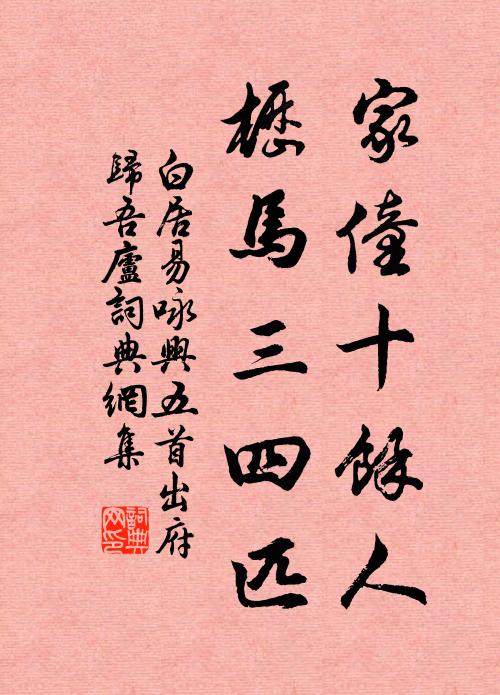 家僮十餘人
櫪馬三四匹
白居易咏興五首出府
歸吾廬詞典網集
詞典
网印